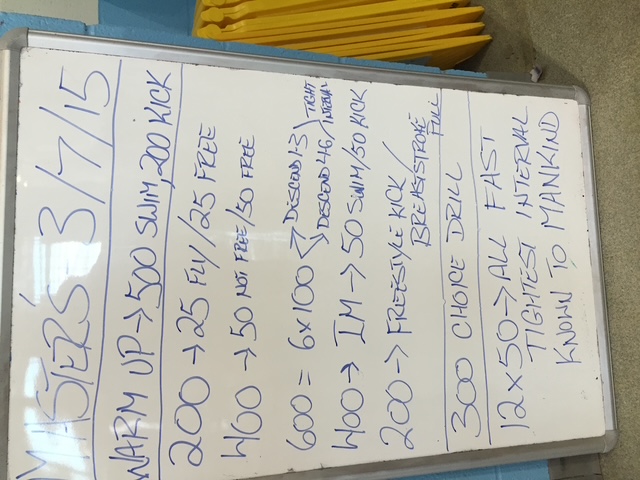 MASTER'S 3/7/15
WARM UP → 500 SWIM, 200 KICK
200 → 25 FLY / 25 FREE
400 → 50 NOT FREE / 50 FREE
600 = 6x100 DESCEND 1-3
DESCEND 4-6
TIGHT
INTERVAL
400 → IM → 50 SWIM/50 KICK
200 → FREESTYLE KICK /
BREASTSTROKE
PULL
300 CHOICE DRILL
12x50 → ALL FAST
TIGHTEST INTERVAL
KNOWN TO MANKIND